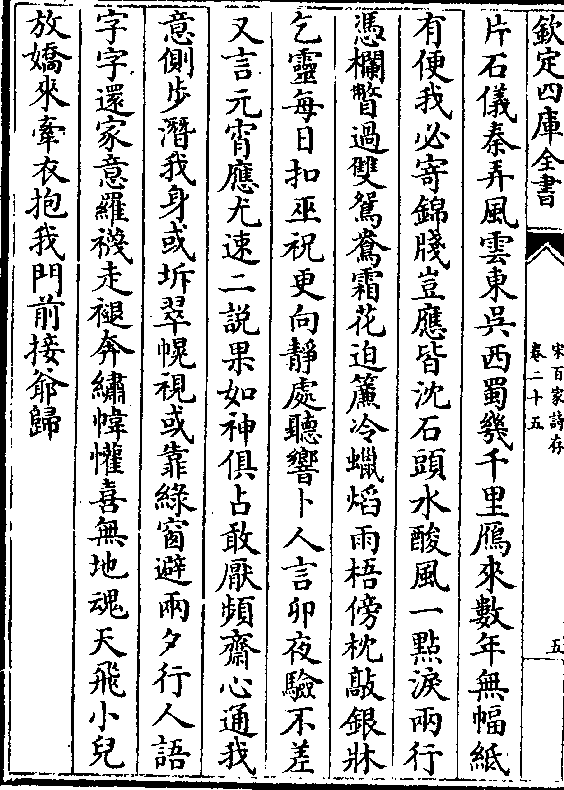 欽定四庫全書
宋百家詩存
卷二十五
五
片石儀秦弄風雲東吳西蜀幾千里鴈來數年無幅紙
有便我必寄錦牋豈應皆沈石頭水酸風一點淚兩行
憑欄瞥過雙鴛鴦霜花迫簾冷蠟熖雨梧傍枕敲銀牀
乞靈每日扣巫祝更向靜處聽響卜人言卯夜驗不差
又言元宵應尤速二說果如神俱占敢厭頻齋心通我
意側步潛我身或坼翠幌視或靠綠窗避兩夕行人語
字字還家意羅襪走褪奔繡幃懽喜無地魂天飛小兒
放嬌來牽衣抱我門前接爺歸